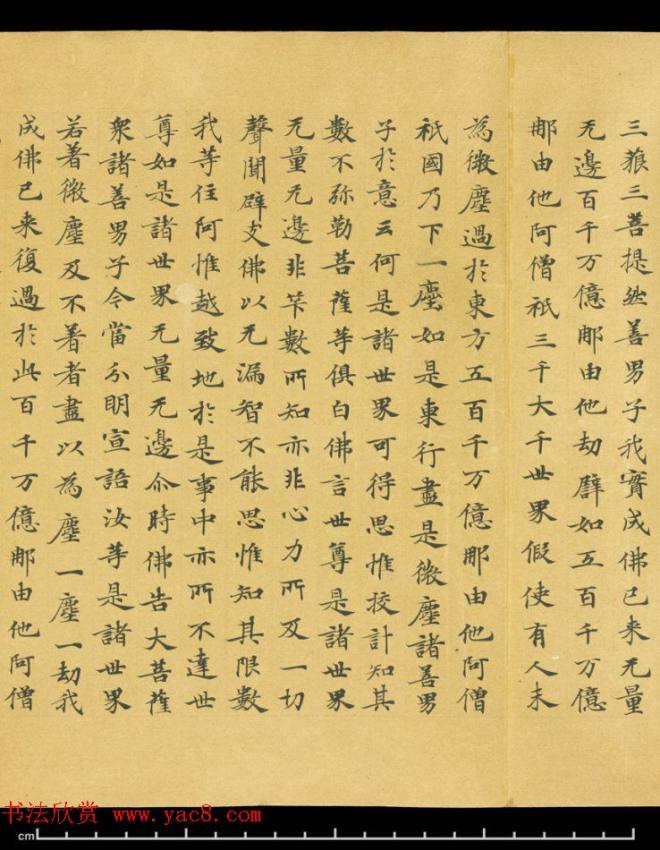 三藐三菩提然善男子我實成佛已来无量
无邊百千万億𨙻由他劫譬如五百千万億
𨙻由他阿僧祇三千大千世界假使有人末
為微塵過於東方五百千万億𨙻由他阿僧
祇國乃下一塵如是東行盡是微塵諸善男
子於意云何是諸世界可得思惟挍計知其
數不弥勒菩薩等俱白佛言世尊是諸世界
无量无邊非筭數所知亦非心力所及一切
聲聞辟支佛以无漏智不能思惟知其限數
我等住阿惟越致地於是事中亦所不達世
尊如是諸世界无量无邊尒時佛告大菩薩
衆諸善男子今當分明宣語汝等是諸世界
若著微塵及不著者盡以為塵一塵一劫我
成佛已来復過於此百千万億𨙻由他阿僧
书法欣赏 www.yac8.com
cm